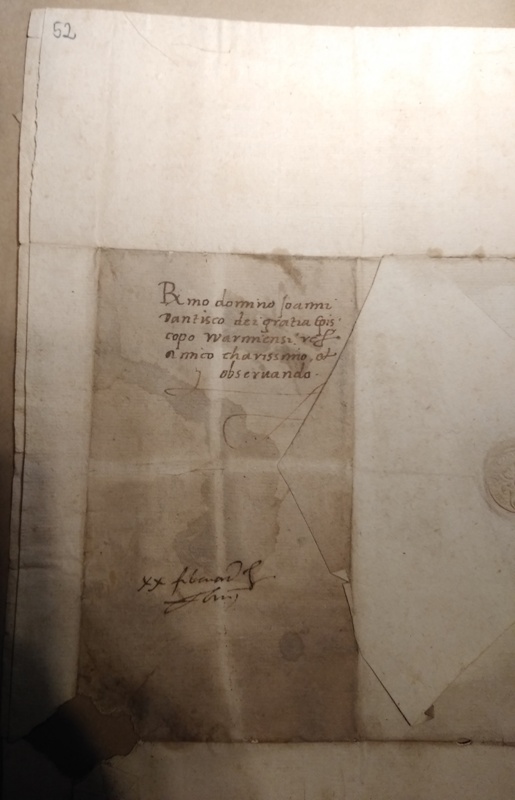 52
Rmo domino Joanni
Dantisco dei gratia Epis
copo Warmiensi
Amico charissimo, et
observando.
xx